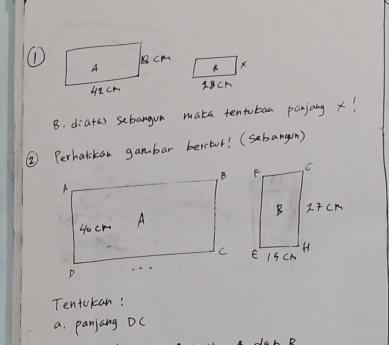 ①
A 18 cm
42 cm
B x
28 cm
B. diatas sebangun maka tentukan panjang x!
② Perhatikan gambar berikut! (sebangun)
A B
40 cm A
D ... C
F G
B 27 cm
E 15 cm H
Tentukan :
a. panjang DC